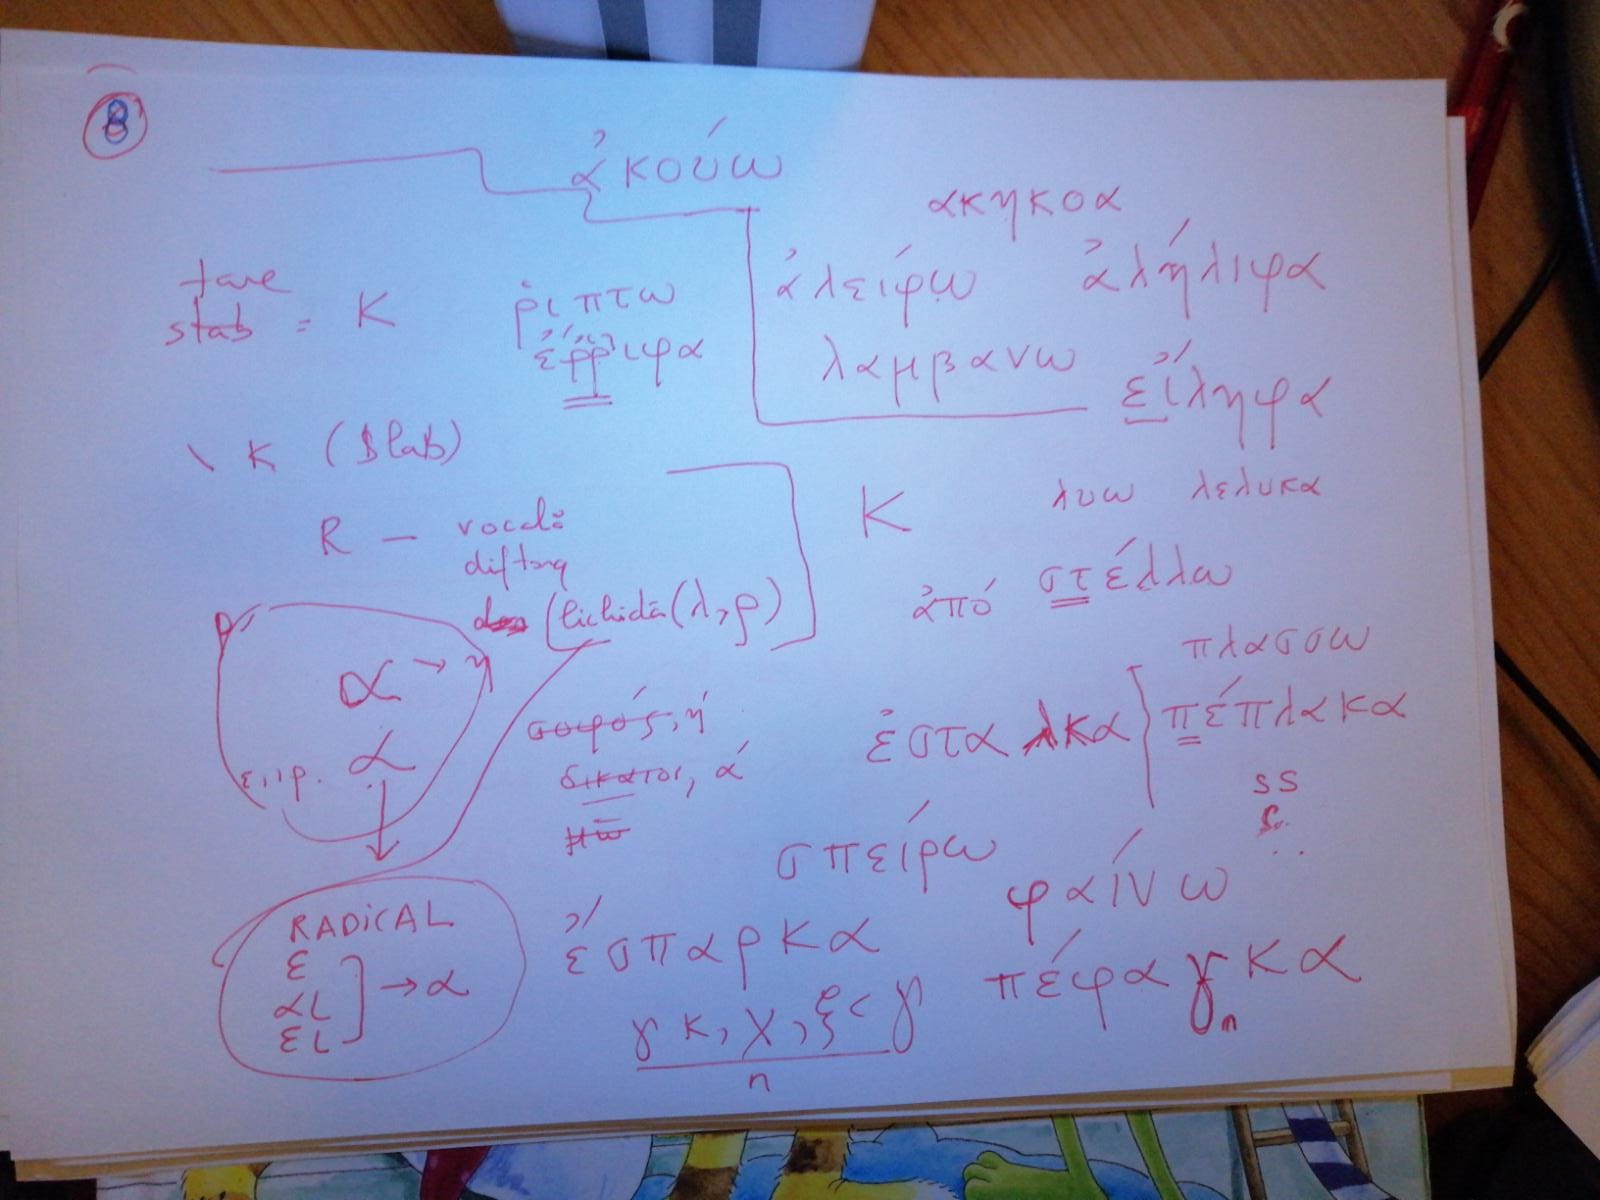 8
ἀκούω
ακηκοα
ἀλείφω ἀλήλιφα
tare
stab = K
ῥιπτω
ἐρριφα
λαμβανω
εἴληφα
\ K (Slab)
R – vocală
diftong
(lichidă (λ, ρ)
K
λυω λελυκα
ἀπό στέλλω
πλασσω
ἐσταλκα
πέπλακα
ss
α → η
ε, ι, ρ. α
σοφός, ή
δικαιοι, ά
σπείρω
φαίνω
RADICAL
ε
αι
ει
→ α
ἔσπαρκα
πέφαγκα
n
γκ, χ, ξ < γ
n